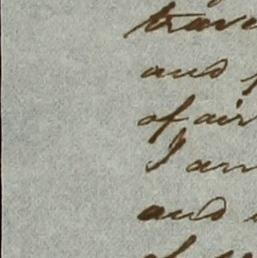 trav
and
of air
I am
and